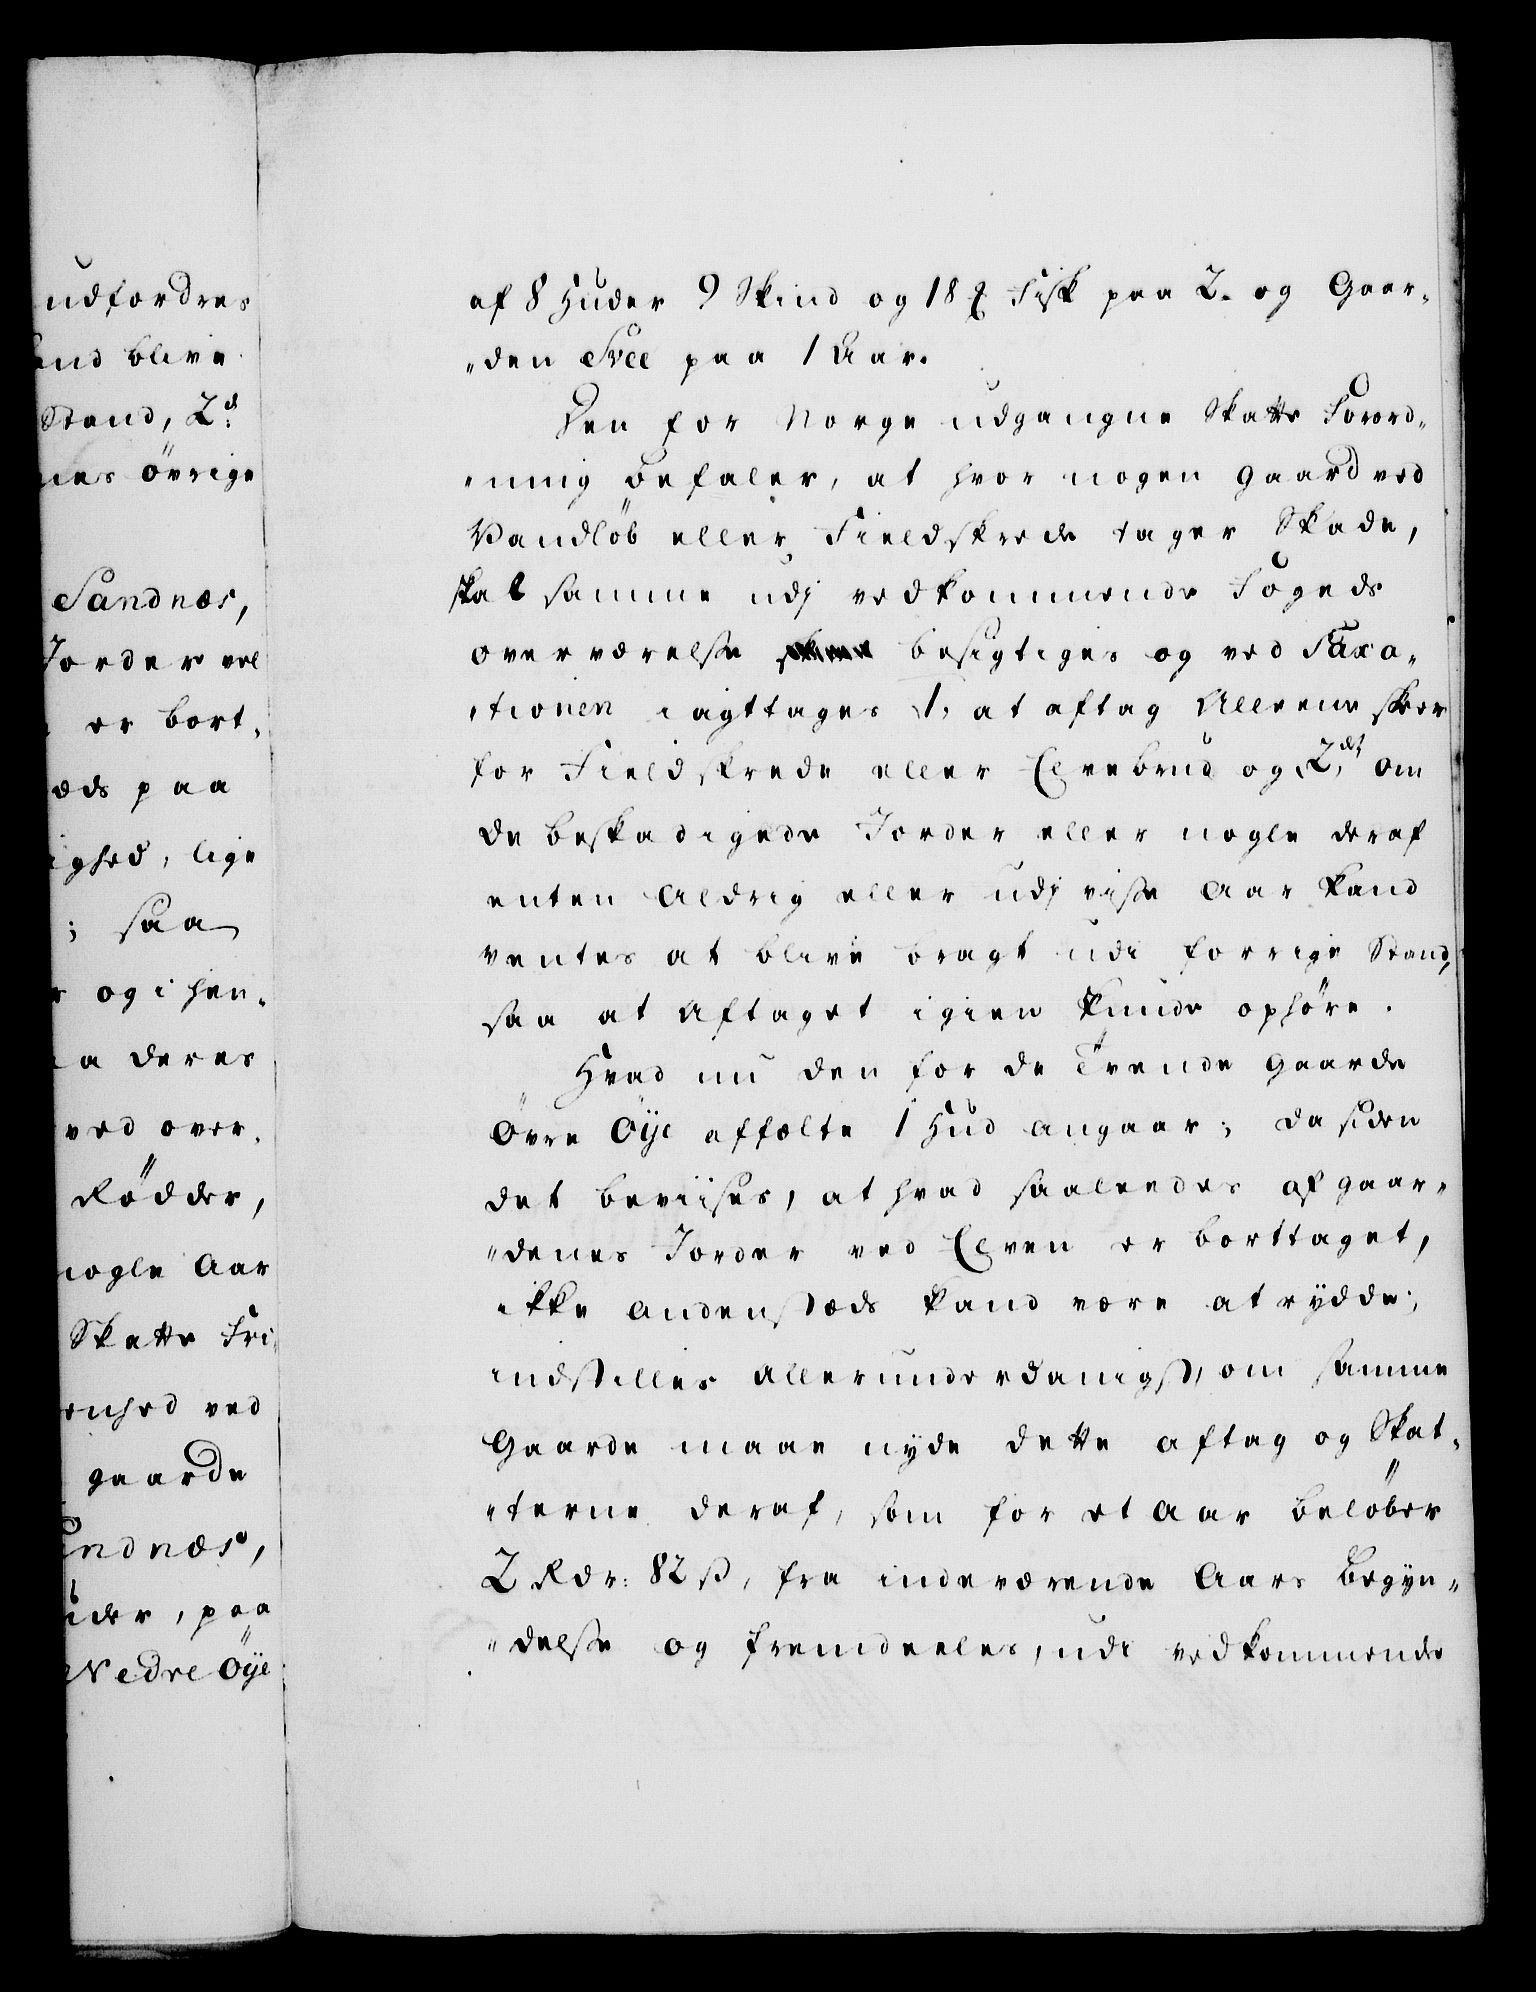 udfordres
and blive
Stand, 2d:
nes övrige
Sandnæs,
Jorder vel
er bort,
æds paa
ighed, lige
; saa
og i hen,
a deres
ved over,
Rödder,
nogle Aar
Skatte Fri
enhed ved
gaarde
andnæs,
uder, paa
Nedre Öye
af 8 Huder 9 Skind og 18 ℔ Fisk paa 2. og Gaar,
"den Svee paa 1 Aar.
Den for Norge udgangne Skatte Forord,
"ning befaler, at hvor nogen Gaard ved
Vandlöb eller Fieldskrede tager Skade,
skal samme udj vedkommende Fogeds
overværelse besigtiges og ved Taxa,
"tionen iagttages 1, at aftag Alleene skeer
for Fieldskrede eller Elvebrud og 2det, om
de beskadigede Jorder eller nogle deraf
enten Aldrig eller udj visse Aar kand
ventes at blive bragt udi forrige Stand,
saa at Aftaget igien kunde ophöre.
Hvad nu den for de Trende Gaarde
Övre Öye affælte 1 Hud angaar; da siden
det beviises, at hvad saaleedes af gaar,
"denes Jorder ved Elven er borttaget,
ikke andenstæds kand være at rydde;
indstilles allerunderdanigst, om samme
Gaarde maae nyde dette aftag og Skat,
"terne deraf, som for et Aar belöber
2 Rdr: 82 ß, fra indeværende Aars Begyn,
"delse og fremdeeles, udi vedkommende